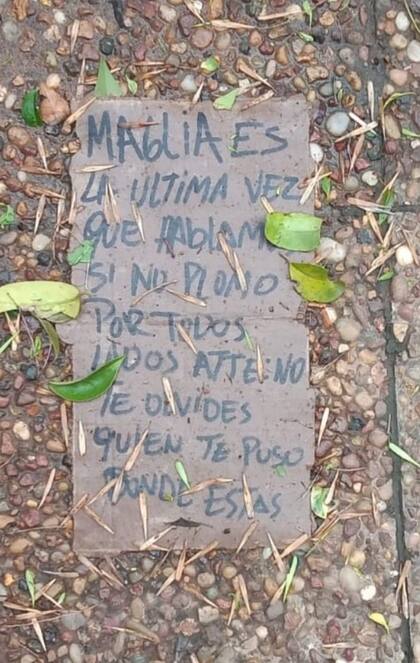 MAGLIA ES
LA ULTIMA VEZ
QUE HABLAMO
SI NO PLOMO
POR TODOS
LADOS ATTE: NO
TE OLVIDES
QUIEN TE PUSO
DONDE ESTAS